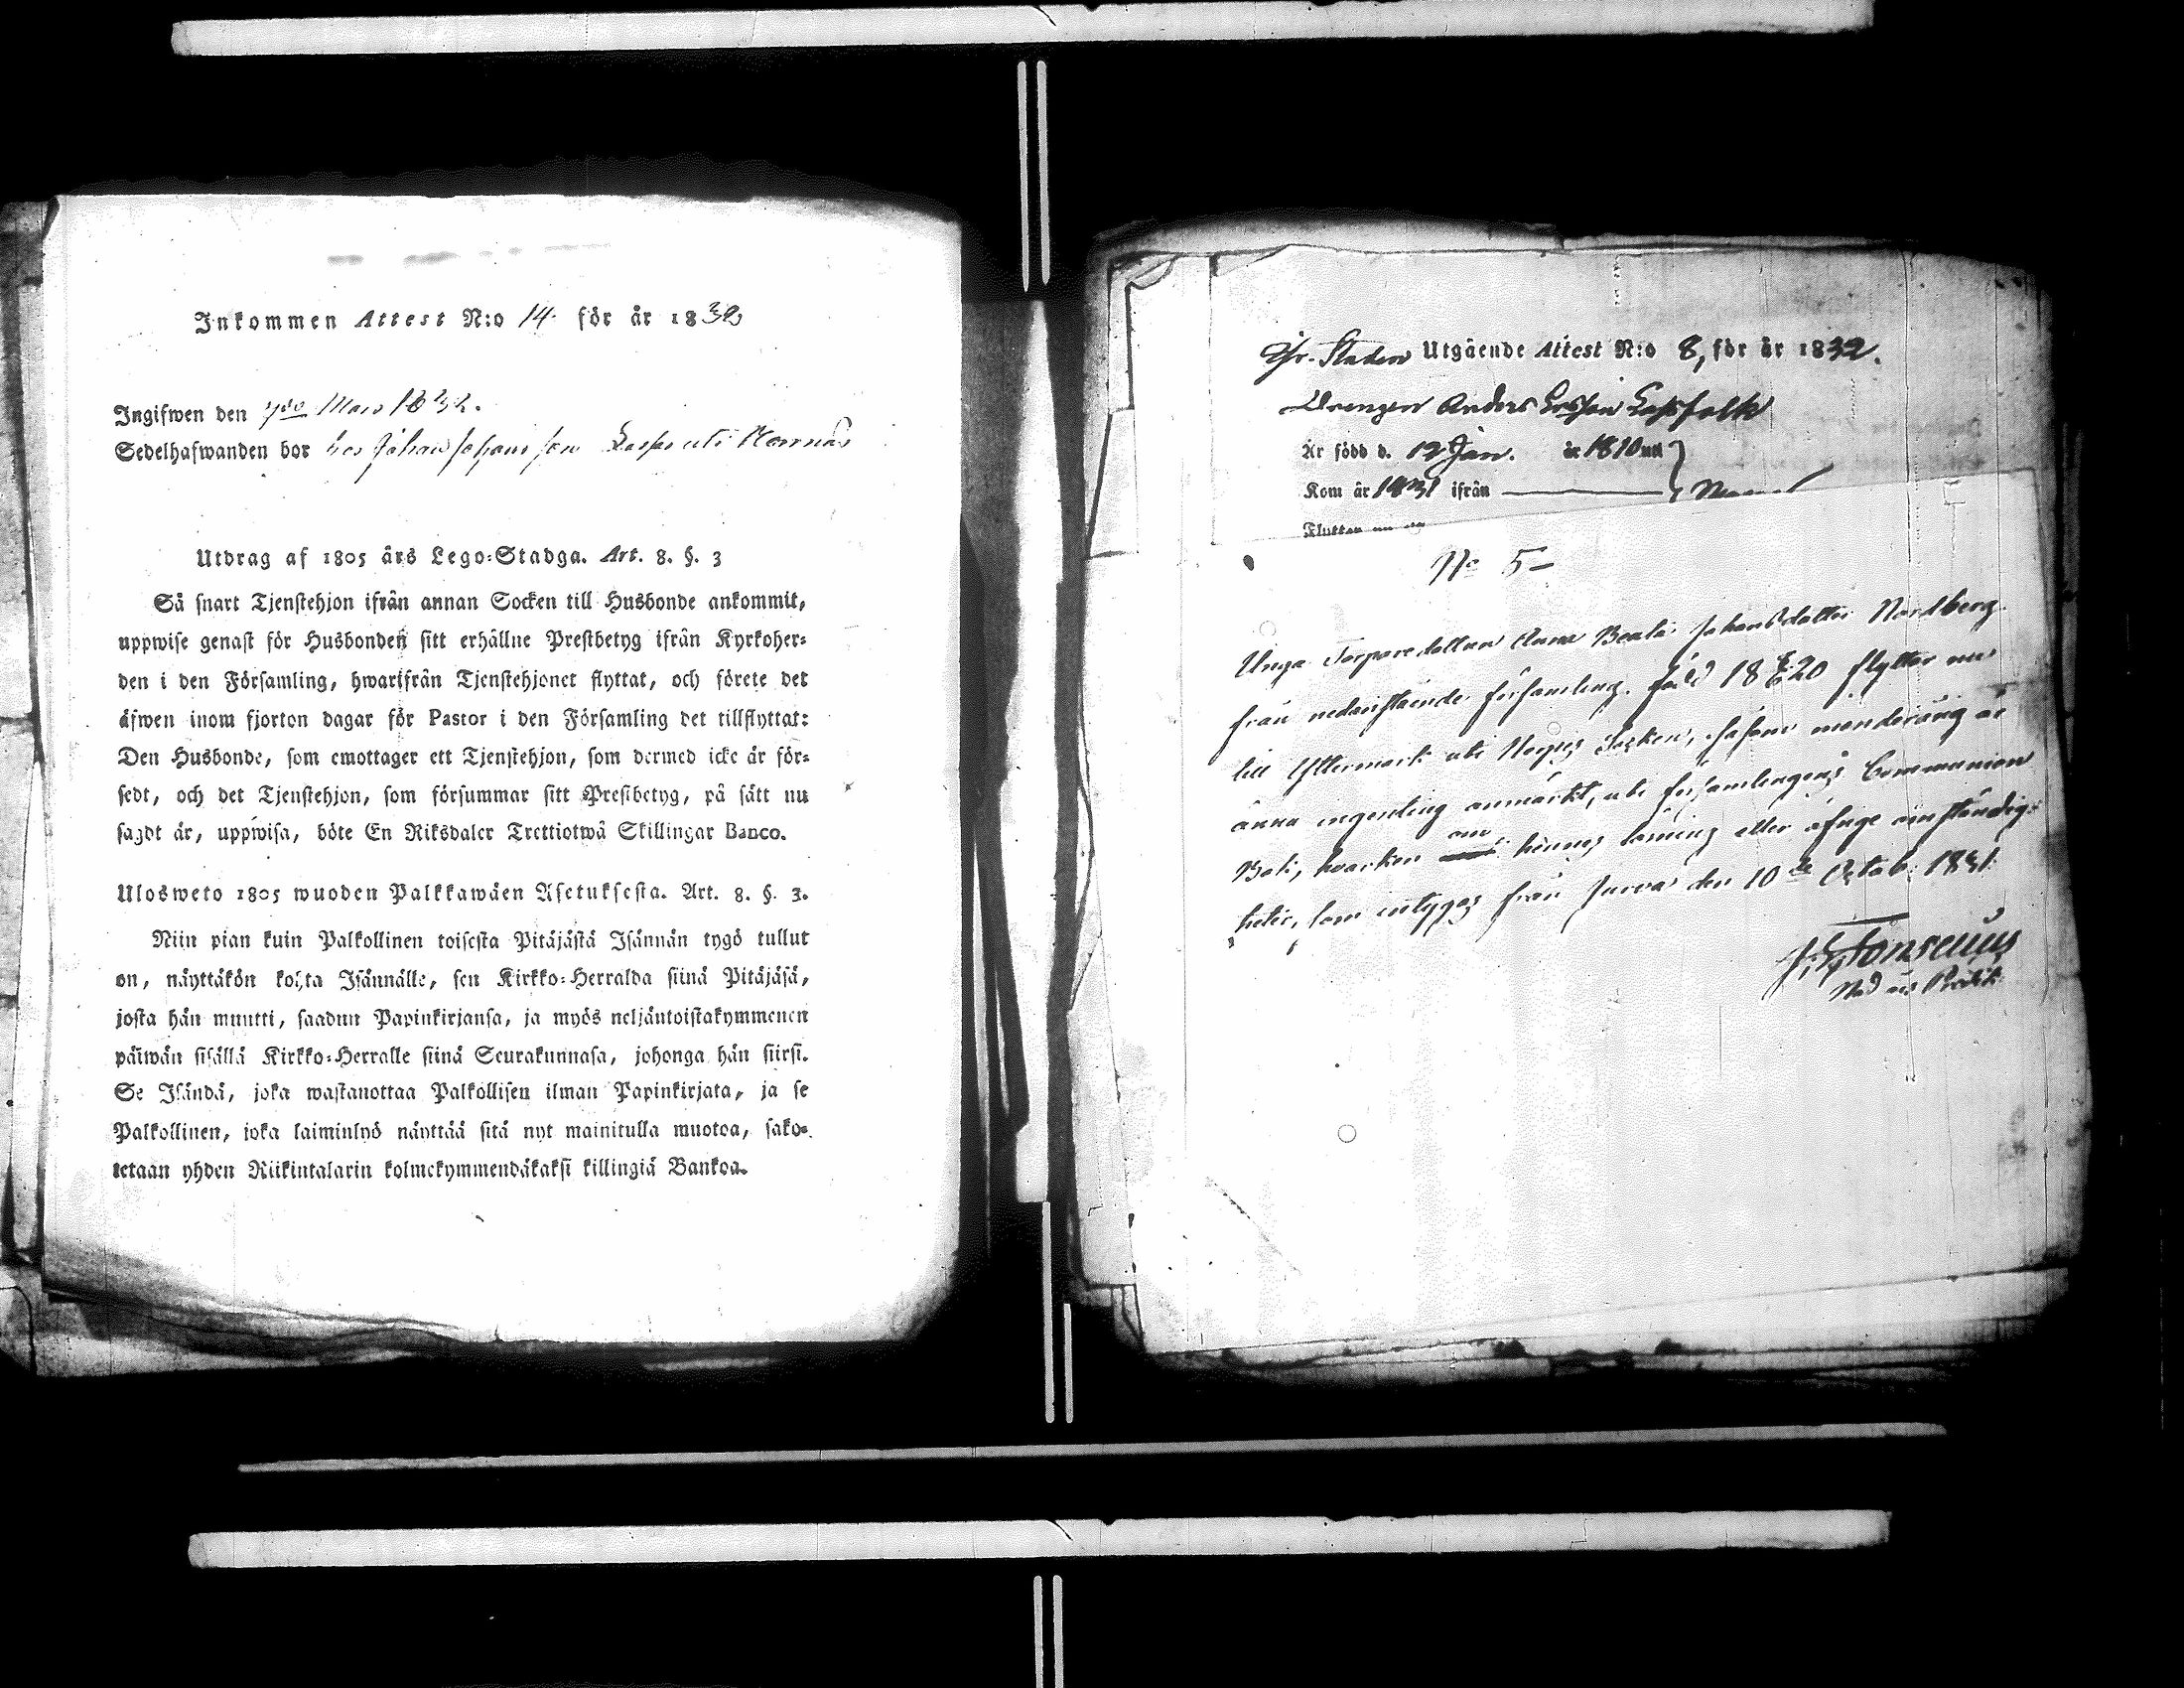 Inkommen Attest N:o 14. för år 1832
Ingifwen den 7de Mars 1832.
Sedelhafwanden bor hos Johan Johansson Lassus uti Norrnäs
Utdrag af 1805 års Lego-Stadga. Art. 8. §. 3
Så snart Tjenstehjon ifrån annan Socken till Husbonde ankommit,
uppwise genast för Husbonden sitt erhållne Prestbetyg ifrån Kyrkoher-
den i den Församling, hwarifrån Tjenstehjonet flyttat, och förete det
äfwen inom fjorton dagar för Pastor i den Församling det tillflyttat:
Den Husbonde, som emottager ett Tjenstehjon, som dermed icke är för-
sedt, och det Tjenstehjon, som försummar sitt Prestbetyg, på sätt nu
sagdt är, uppwisa, böte En Riksdaler Trettiotwå Skillingar Banco.
Ulosweto 1805 wuoden Palkkawäen Asetuksesta. Art. 8. §. 3.
Niin pian kuin Palkollinen toisesta Pitäjästä Isännän tygö tullut
on, näyttäkön kohta Isännälle, sen Kirkko-Herralda siinä Pitäjäsä,
josta hän muutti, saadun Papinkirjansa, ja myös neljäntoistakymmenen
päiwän sisällä Kirkko-Herralle siinä Seurakunnasa, johonga hän siirsi.
Se Isändä, joka wastanottaa Palkollisen ilman Papinkirjata, ja se
Palkollinen, joka laiminlyö näyttää sitä nyt mainitulla muotoa, sako-
tetaan yhden Riikintalarin kolmekymmendäkaksi killingiä Bankoa.
Staden Utgående Attest N:o 8, för år 1832.
Drengen Anders Ersson Lassfolk
Är född d. 12 Jan. år 1810 uti
Kom år 1831 ifrån
Flyttar nu
No 5
Unga Torparedottren Anna Beata Johansdotter Nordberg
från nedanstående församling, född 18 20 flyttar nu
till Yttermark uti Närpes Socken, såsom
ännu ingenting anmärkt, uti församlingens Communion
Bok, hvarken om hennes läsning eller öfrige omständig-
heter, som intygas från Jurva den 10de Octob. 1831.